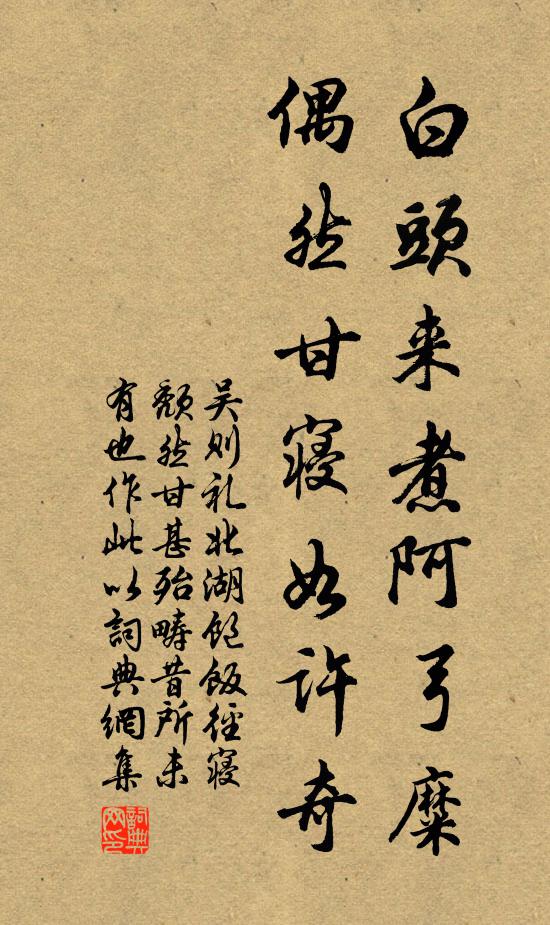 白頭来煮阿弓糜
偶然甘寝如許奇
吴则礼北湖飽飯徑寝
頹然甘甚殆疇昔所未
有也作此以詞典網集
詞典网印